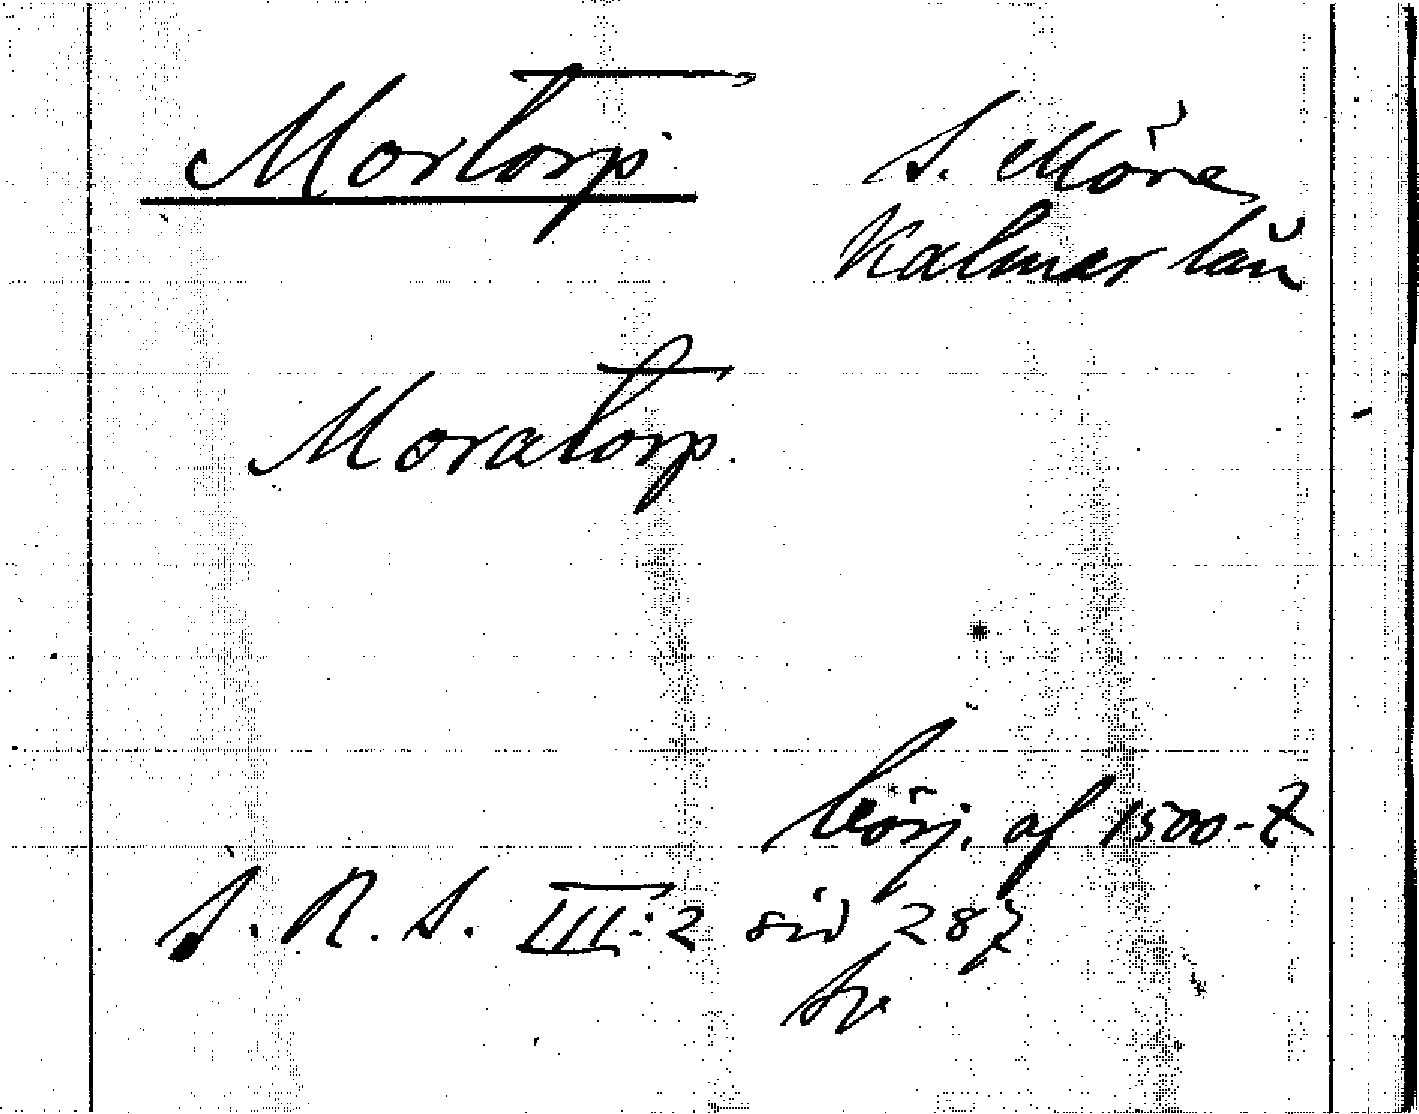 Mortorp S. Möre
Kalmar län
Moratorp.
börj. af 1500-t
S. R. S. III:2 sid 287